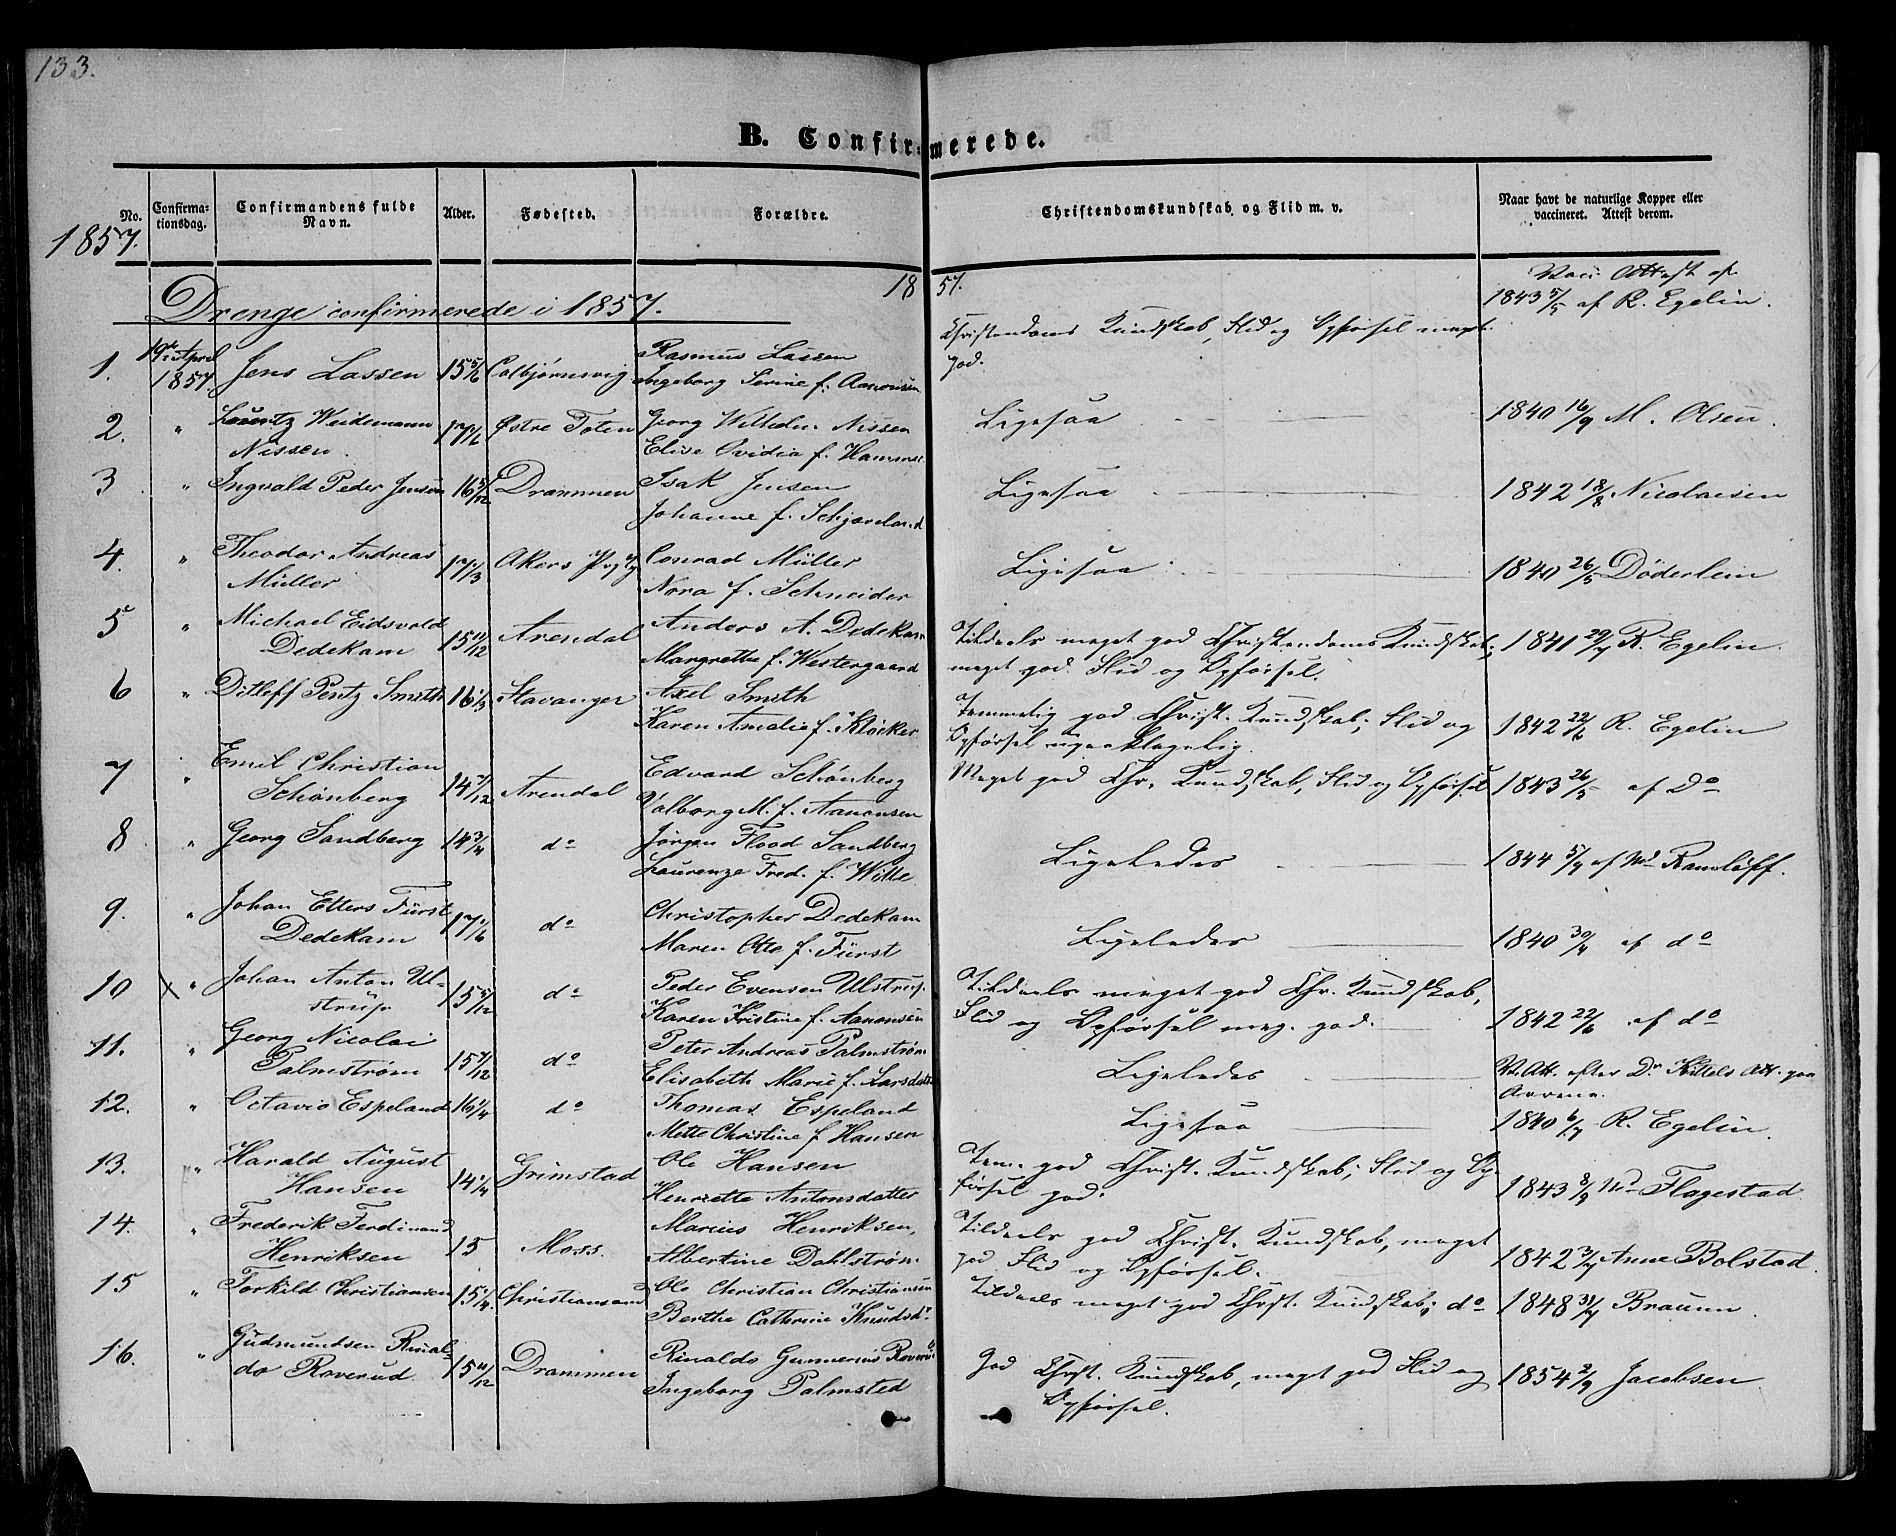 133.
B. Confirmerede.
No.
Confirma-
tionsdag.
Confirmandens fulde
Navn.
Alder.
Fødested.
Forældre.
Christendomskundskab og Flid m. v.
Naar havt de naturlige Kopper eller
vaccineret. Attest derom.
1857.
1857.
Drenge confirmerede i 1857.
1. 19de April 1857. Jens Lassen 15 5/6 Colbjørnsvig
Rasmus Lassen
Ingeborg Serine f. Aanonsen
Christendoms Kundskab, Flid og Opførsel meget
god.
Vacc. Attest af
1843 5/5 af R. Egelin.
2. " Lauritz Weidemann
Nissen. 17 1/6 Østre Toten
Georg Wilhelm Nissen
Elise Ovidia f. Hammer
Ligesaa
1840 16/9 M. Olsen.
3 " Ingvald Peder Jensen 16 5/12 Drammen
Isak Jensen
Johanne f. Schjoveland
Ligesaa
1842 18/8 Nicolaisen
4. " Theodor Andreas
Müller 17 1/3 Akers
Conrad Müller
Nora f. Schneider
Ligesaa
1840 26/5 Döderlein
5 " Michael Eidsvold
Dedekam 15 11/12 Arendal
Anders A. Dedekam
Margrethe f. Westergaard
Tildeels meget god Christendoms Kundskab;
meget god Flid og Opførsel.
1841 29/7 R. Egelin.
6 " Ditleff Pentz Smith 16 1/3 Stavanger
Axel Smith
Karen Amalie f. Kløcker
Temmelig god Christ. Kundskab; Flid og
Opførsel upaaklagelig.
1842 22/6 R. Egelin
7 " Emil Christian
Schønberg 14 7/12 Arendal
Edvard Schønberg
Valborg M. f. Aanonsen
Meget god Chr. Kundskab, Flid og Opførsel
1843 26/5 af Do
8 " Georg Sandberg 14 3/4 do
Jørgen Flood Sandberg
Laurenze Fred. f. Wille
Ligeledes
1844 5/7 af Md Ramløff.
9. " Johan Ellers Fürst
Dedekam 17 1/6 do
Christopher Dedekam
Maren Otte f. Fürst
Ligeledes
1840 30/4 af do
10 x " Johan Anton Ul-
strup 15 5/12 do
Peder Evensen Ulstrup.
Karen Kristine f. Aanonsen
Tildeels meget god Chr. Kundskab,
Flid og Opførsel meg. god.
1842 22/6 af do
11. " Georg Nicolai
Palmstrøm 15 7/12 do
Peter Andreas Palmstrøm
Elisabeth Marie f. Larsdatter
Ligeledes
V. Att. efter Dr Kittels Att. paa
Armene.
12. " Octavio Espeland 16 1/4 do
Thomas Espeland
Mette Christine f Hansen
Ligesaa
1840 6/7 R. Egelin.
13. " Harald August
Hansen 14 1/4 Grimstad
Ole Hansen
Henriette Antonsdatter
Tem. god Christ. Kundskab; Flid og Op-
førsel god.
1843 8/9 Md Flagestad
14. " Frederik Ferdinand
Henriksen 15 Moss.
Marius Henriksen,
Albertine Dahlstrøm
Tildeels god Christ. Kundskab, meget
god Flid og Opførsel.
1842 3/7 Anne Bolstad.
15 " Torkild Christiansen 15 1/4. Christiansand
Ole Christian Christiansen
Berthe Cathrine Knudsdr
Tildeels meget god Christ. Kundskab; do
1848 31/7 Braunn.
16. " Gudmundsen Rinal-
do Roverud 15 11/12 Drammen
Rinaldo Gunnerius Roverud
Ingeborg Palmsted
God Christ. Kundskab, meget god Flid og
Opførsel.
1854 2/9 Jacobsen